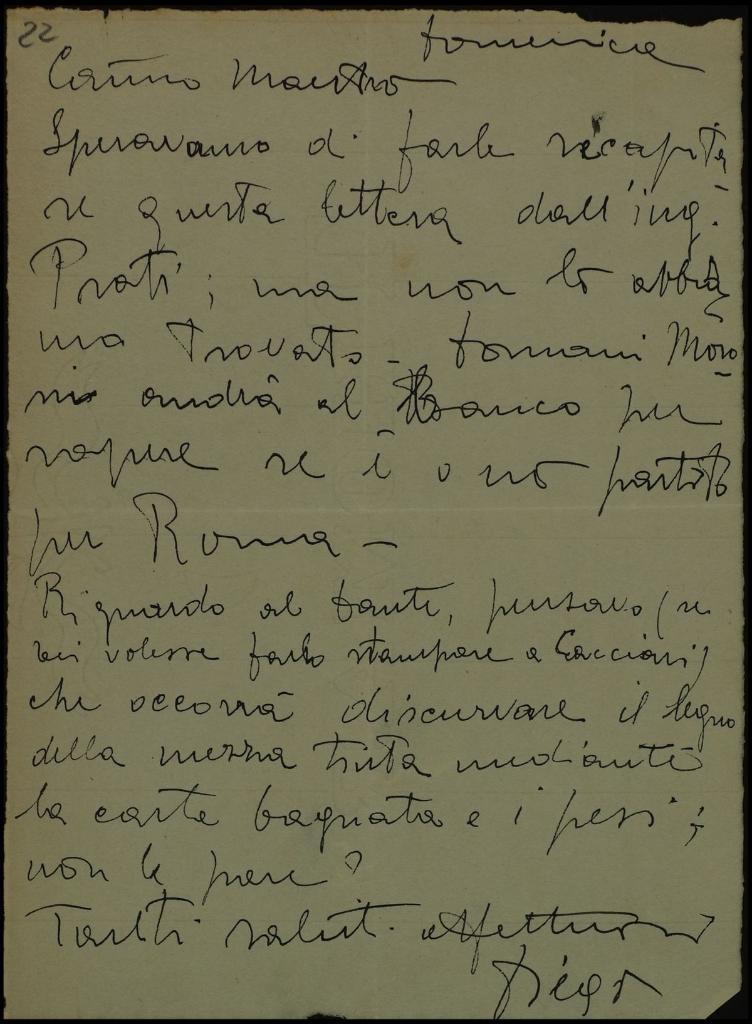 22
Domenica
Car.mo Maestro
Speravamo di farle recapita
re questa lettera dall'ing.
Prati; ma non lo abbia
mo trovato - Domani Moro
ni andrà al Banco per
sapere se è o no partito
per Roma -
Riguardo al Dante, pensavo (se
lei volesse farlo stampare a Cacciari)
che occorrà discurvare il legno
della mezza tinta mediante
la carta bagnata e i pesi;
non le pare?
Tanti saluti affettuosi
Diego